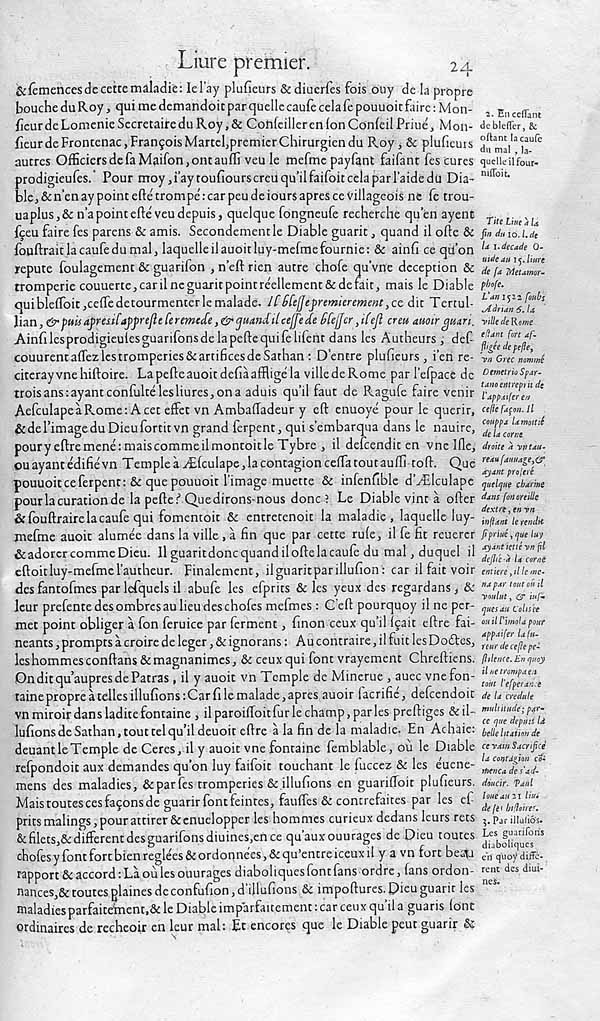 Liure premier. 24
& ſemences de cette maladie: Ie l'ay pluſieurs & diuerſes fois ouy de la propre
bouche du Roy, qui me demandoit par quelle cauſe cela ſe pouuoit faire: Mon-
ſieur de Lomenie Secretaire du Roy, & Conſeiller en ſon Conſeil Priué, Mon-
ſieur de Frontenac, François Martel, premier Chirurgien du Roy, & pluſieurs
autres Officiers de ſa Maiſon, ont auſſi veu le meſme payſant faiſant ſes cures
prodigieuſes. Pour moy, i'ay touſiours creu qu'il faiſoit cela par l'aide du Dia-
ble, & n'en ay point eſté trompé: car peu de iours apres ce villageois ne ſe trou-
ua plus, & n'a point eſté veu depuis, quelque ſongneuſe recherche qu'en ayent
ſçeu faire ſes parens & amis. Secondement le Diable guarit, quand il oſte &
ſouſtrait la cauſe du mal, laquelle il auoit luy-meſme fournie: & ainſi ce qu'on
repute ſoulagement & guariſon, n'eſt rien autre choſe qu'vne deception &
tromperie couuerte, car il ne guarit point réellement & de fait, mais le Diable
qui bleſſoit, ceſſe de tourmenter le malade. Il bleſſe premierement, ce dit Tertul-
lian, & puis apres il appreſte le remede, & quand il ceſſe de bleſſer, il eſt creu auoir guari.
Ainſi les prodigieuſes guariſons de la peſte qui ſe liſent dans les Autheurs, deſ-
couurent aſſez les tromperies & artifices de Sathan: D'entre pluſieurs, i'en re-
citeray vne hiſtoire. La peſte auoit deſià affligé la ville de Rome par l'eſpace de
trois ans: ayant conſulté les liures, on a aduis qu'il faut de Raguſe faire venir
Aeſculape à Rome: A cet effet vn Ambaſſadeur y eſt enuoyé pour le querir,
& de l'image du Dieu ſortit vn grand ſerpent, qui s'embarqua dans le nauire,
pour y eſtre mené: mais comme il montoit le Tybre, il deſcendit en vne Iſle,
ou ayant édifié vn Temple à Æſculape, la contagion ceſſa tout auſſi-toſt. Que
pouuoit ce ſerpent: & que pouuoit l'image muette & inſenſible d'Æſculape
pour la curation de la peſte? Que dirons-nous donc? Le Diable vint à oſter
& ſouſtraire la cauſe qui fomentoit & entretenoit la maladie, laquelle luy-
meſme auoit alumée dans la ville, à fin que par cette ruſe, il ſe fit reuerer
& adorer comme Dieu. Il guarit donc quand il oſte la cauſe du mal, duquel il
eſtoit luy-meſme l'autheur. Finalement, il guarit par illuſion: car il fait voir
des fantoſmes par leſquels il abuſe les eſprits & les yeux des regardans, &
leur preſente des ombres au lieu des choſes meſmes: C'eſt pourquoy il ne per-
met point obliger à ſon ſeruice par ſerment, ſinon ceux qu'il ſçait eſtre fai-
neants, prompts à croire de leger, & ignorans: Au contraire, il fuit les Doctes,
les hommes conſtans & magnanimes, & ceux qui ſont vrayement Chreſtiens.
On dit qu'aupres de Patras, il y auoit vn Temple de Minerue, auec vne fon-
taine propre à telles illuſions: Car ſi le malade, apres auoir ſacrifié, deſcendoit
vn miroir dans ladite fontaine, il paroiſſoit ſur le champ, par les preſtiges & il-
luſions de Sathan, tout tel qu'il deuoit eſtre à la fin de la maladie. En Achaie:
deuant le Temple de Ceres, il y auoit vne fontaine ſemblable, où le Diable
reſpondoit aux demandes qu'on luy faiſoit touchant le ſuccez & les éuene-
mens des maladies, & par ſes tromperies & illuſions en guariſſoit pluſieurs.
Mais toutes ces façons de guarir ſont feintes, fauſſes & contrefaites par les eſ-
prits malings, pour attirer & enuelopper les hommes curieux dedans leurs rets
& filets, & different des guariſons diuines, en ce qu'aux ouurages de Dieu toutes
choſes y ſont fort bien reglées & ordonnées, & qu'entre iceux il y a vn fort beau
rapport & accord: Là où les ouurages diaboliques ſont ſans ordre, ſans ordon-
nances, & toutes plaines de confuſion, d'illuſions & impoſtures. Dieu guarit les
maladies parfaitement, & le Diable imparfaitement: car ceux qu'il a guaris ſont
ordinaires de recheoir en leur mal: Et encores que le Diable peut guarir &
2. En ceſſant
de bleſſer, &
oſtant la cauſe
du mal, la-
quelle il four-
niſſoit.
Tite Liue à la
fin du 10. l. de
la 1. decade O-
uide au 15. liure
de ſa Metamor-
phoſe.
L'an 1522 ſoubs
Adrian 6. la
ville de Rome
eſtant fort af-
fligée de peſte,
vn Grec nommé
Demetrio Spar-
tano entreprit de
l'appaiſer en
ceſte façon. Il
couppa la moitié
de la corne
droite à vn tau-
reau ſauuage, &
ayant proferé
quelque charme
dans ſon oreille
dextre, en vn
inſtant le rendit
ſi priué, que luy
ayant ietté vn fil
deſlié à la corne
entiere, il le me-
na par tout où il
voulut, & iuſ-
ques au Coliſée
ou il l'imola pour
appaiſer la fu-
reur de ceſte pe-
ſtilence. En quoy
il ne trompa en
tout l'eſperance
de la credule
multitude; par-
ce que depuis la
belle litation de
ce vain Sacrifice
la contagion cō-
mença de s'ad-
doucir. Paul
Ioue au 21 liu.
de ſes hiſtoires.
3. Par illuſiōs.
Les guariſons
diaboliques
en quoy diffe-
rent des diui-
nes.